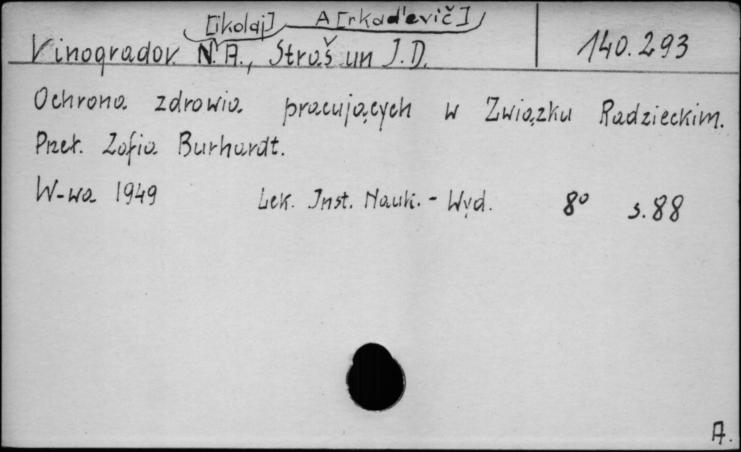 [ikolaj] A[rkad'evič]
Vinogradov N. A., Straš un J. D. 140.293
Ochrona zdrowia pracujących w Związku Radzieckim.
Przeł. Zofia Burhardt.
W-wa 1949 Lek. Inst. Nauk. - Wyd. 8° s. 88
A.